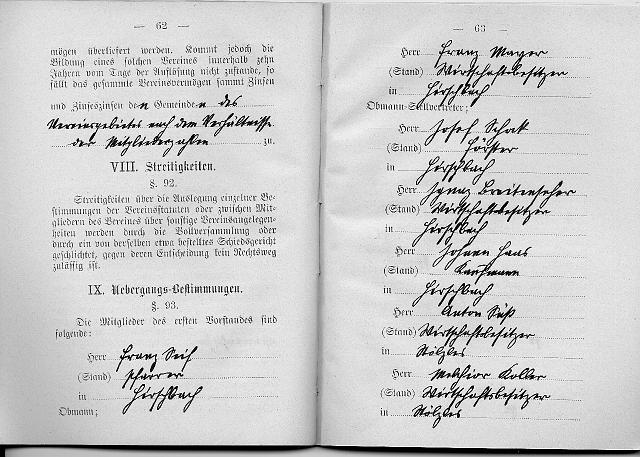 — 62 —
mögen überliefert werden. Kommt jedoch die
Bildung eines solchen Vereines innerhalb zehn
Jahren vom Tage der Auflösung nicht zustande, so
fällt das gesammte Vereinsvermögen sammt Zinsen
und Zinseszinsen den Gemeinden des
Vereinsgebietes nach dem Verhältnisse
der Mitgliederzahlen zu.
VIII. Streitigkeiten.
§. 92.
Streitigkeiten über die Auslegung einzelner Be-
stimmungen der Vereinsstatuten oder zwischen Mit-
gliedern des Vereines über sonstige Vereinsangelegen-
heiten werden durch die Vollversammlung oder
durch ein von derselben etwa bestelltes Schiedsgericht
geschlichtet, gegen deren Entscheidung kein Rechtsweg
zulässig ist.
IX. Uebergangs-Bestimmungen.
§. 93.
Die Mitglieder des ersten Vorstandes sind
folgende:
Herr Franz
(Stand) Pfarrer
in Hirschbach
Obmann;
— 63 —
Herr Franz Mayer
(Stand) Wirtschaftsbesitzer
in Hirschbach
Obmann-Stellvertreter;
Herr Josef Schrat
(Stand) Förster
in Hirschbach
Herr Ignaz Breitenseher
(Stand) Wirtschaftsbesitzer
in Hirschbach
Herr Johann Haas
(Stand) Kaufmann
in Hirschbach
Herr Anton Süß
(Stand) Wirtschaftsbesitzer
in Stölzles
Herr Melchior Koller
(Stand) Wirtschaftsbesitzer
in Stölzles